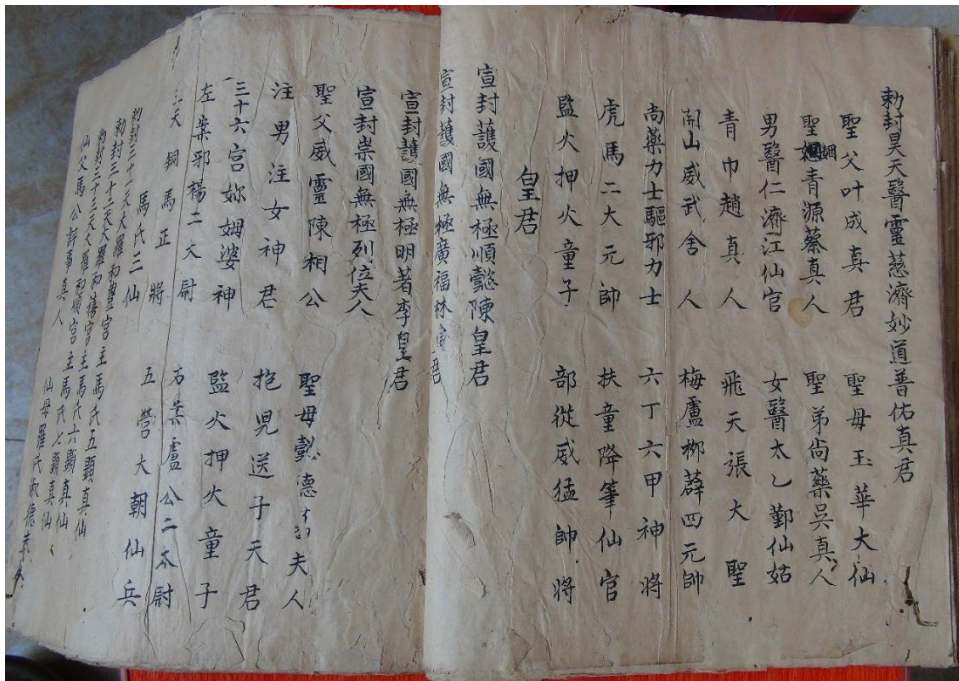 勅封昊天醫靈慈濟妙道普佑真君
聖父叶成真君 聖母玉華大仙
聖姻青源蔡真人 聖弟尚藥吳真人
男醫仁濟江仙官 女醫太乙鄞仙姑
青巾趙真人 飛天張大聖
開山威武舍人 梅盧柳薜四元帥
尚藥力士驅邪力士 六丁六甲神將
虎馬二大元帥 扶童降筆仙官
監火押火童子 部從威猛帥將
皇君
宣封護國無極順懿陳皇君
宣封護國無極廣福林皇君
宣封護國無極明著李皇君
宣封崇國無極列位夫人
聖父威靈陳相公 聖母懿德 夫人
注男注女神君 抱児送子天君
三十六宮妳姆婆神 監火押火童子
左案邪楊二大尉 右案盧公二太尉
天銅馬正將 五營大朝仙兵
馬氏三仙
勅封三十三天大羅和豐宮主馬氏五顯真仙
勅封三十三天大羅和禧宮主馬氏六顯真仙
勅封三十三天大羅和順宮主馬氏七顯真仙
仙父馬公 真人 仙母羅氏